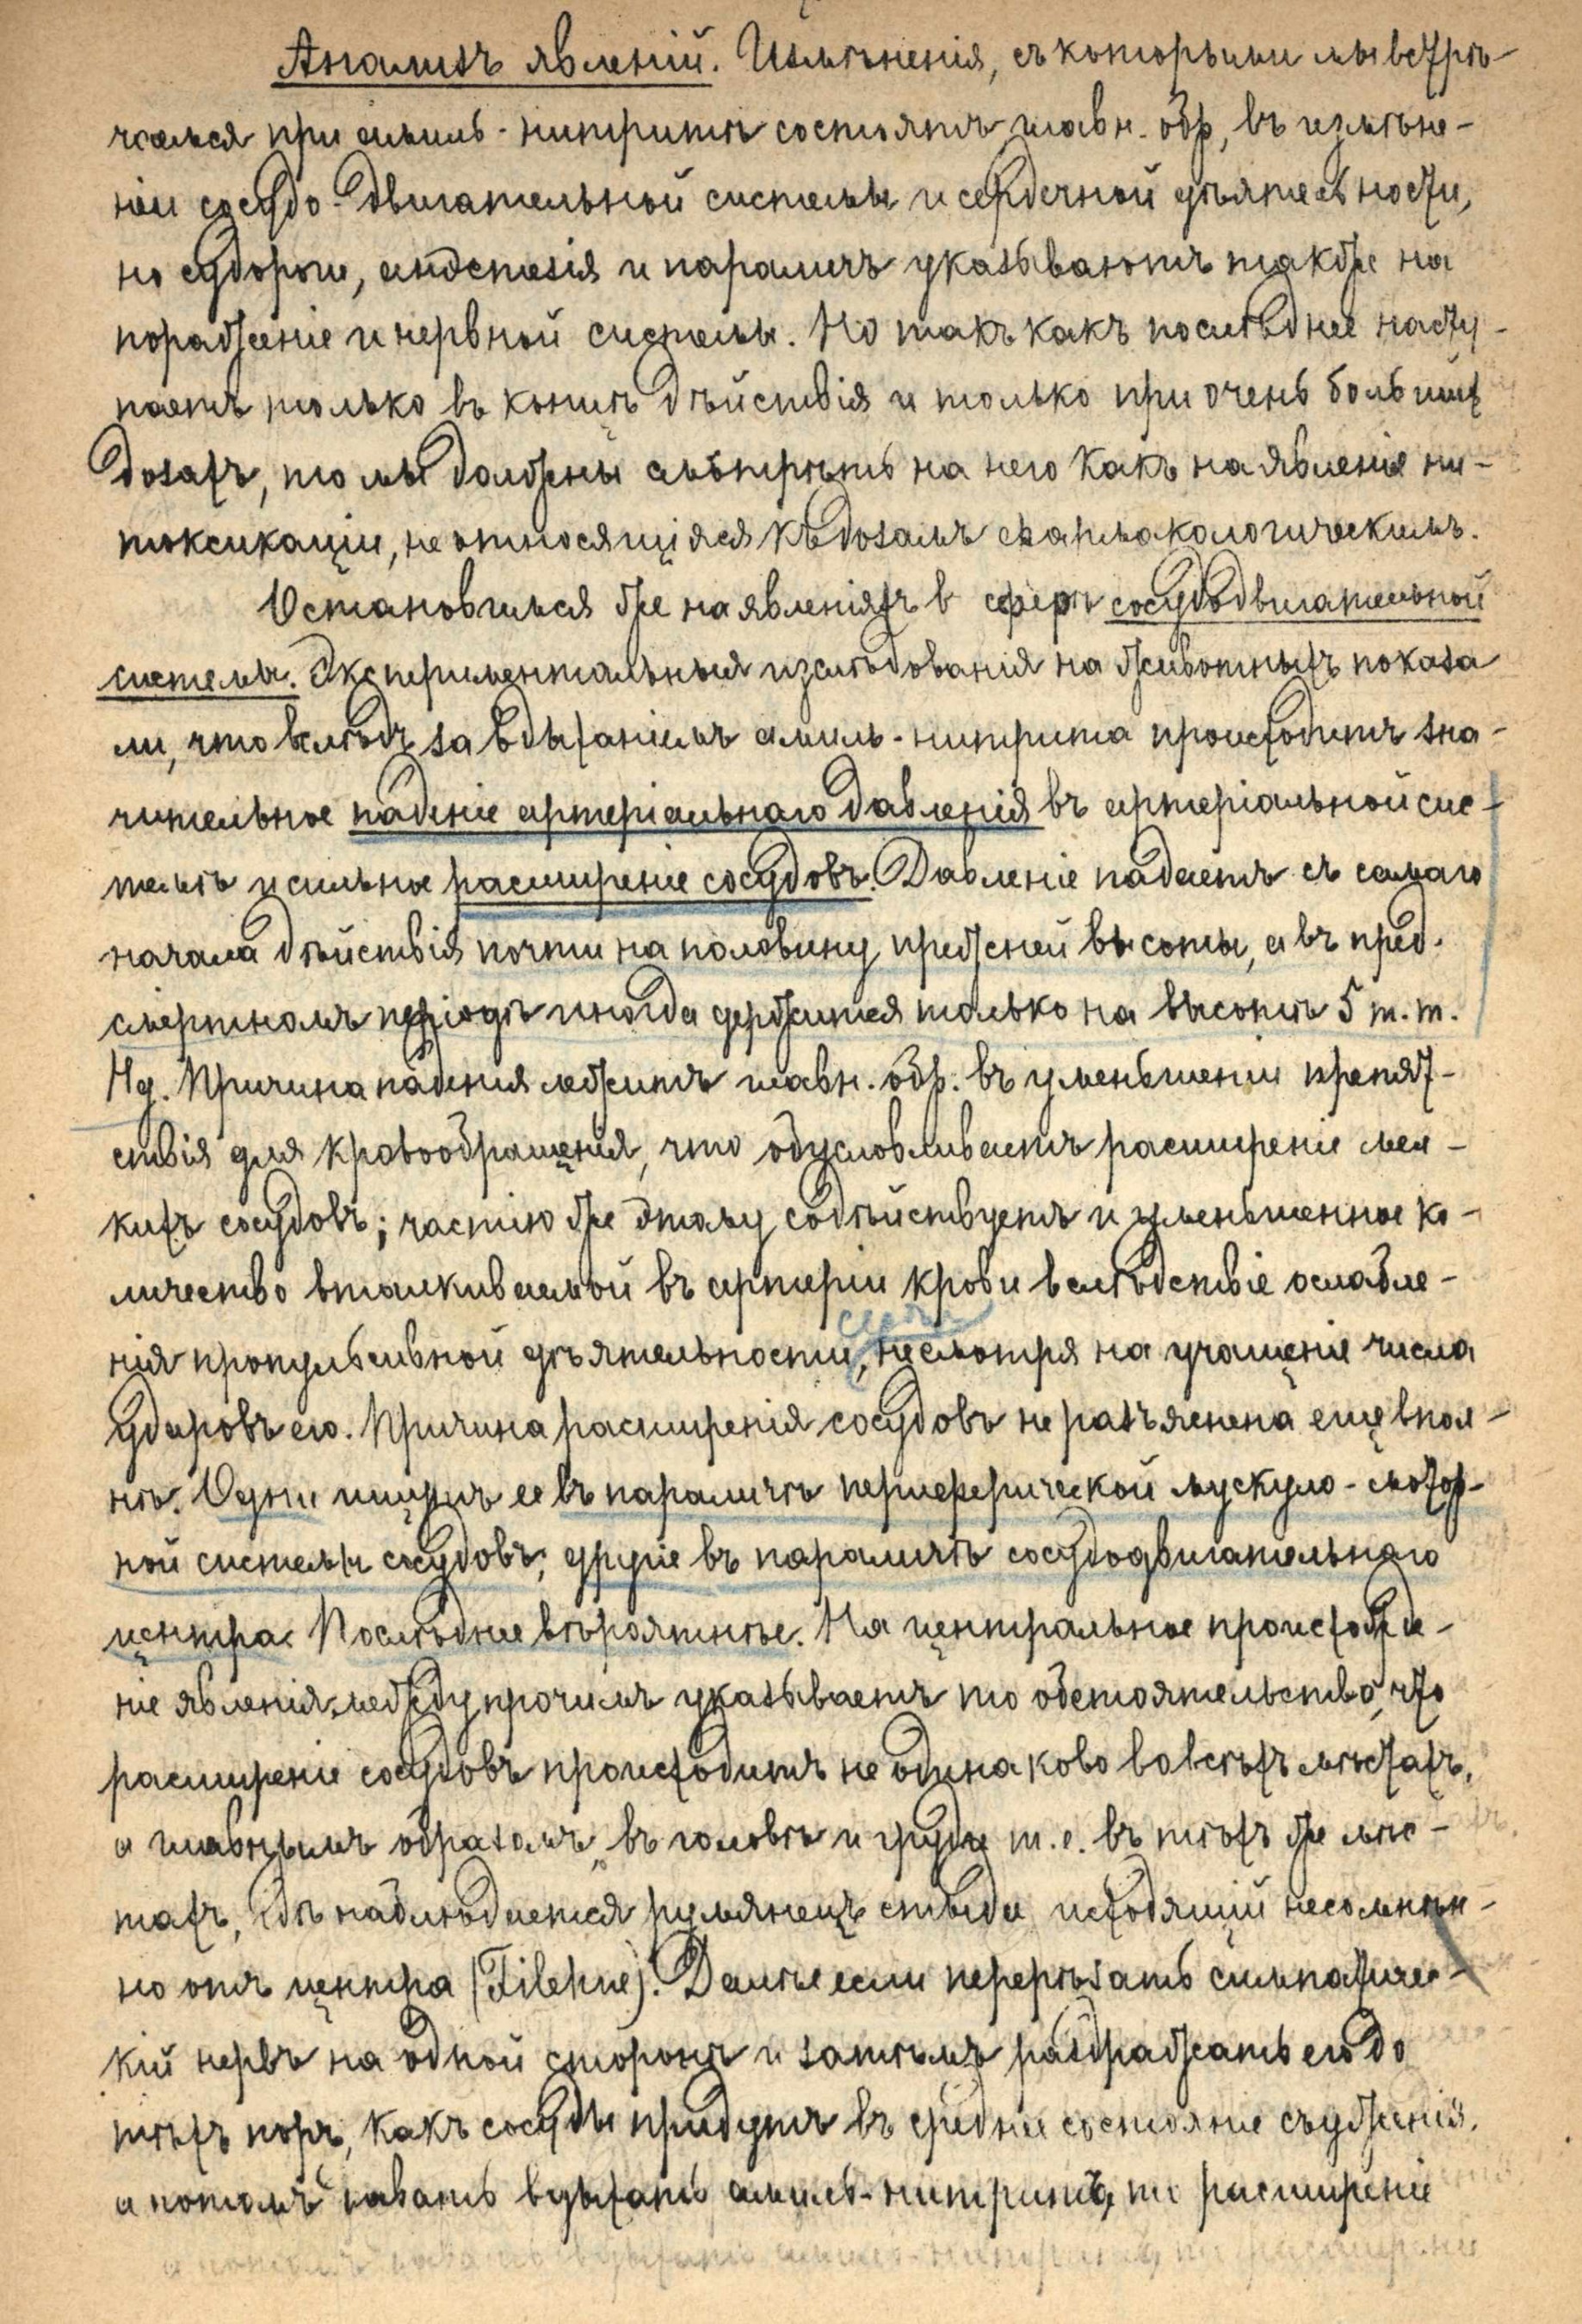 Анализъ явленій. Измѣненія, съ которыми мы встрѣ-
чаемся при амилъ-нитритѣ состоятъ главн. обр, въ измѣне-
ніи сосудо-двигательной системы и сердечной дѣятельности,
но судороги, анэстезія и параличъ указываютъ также на
пораженіе и нервной системы. Но такъ какъ послѣднее насту-
паетъ только въ концѣ дѣйствія и только при очень большихъ
дозахъ, то мы должны смотрѣть на него какъ на явленіе ин-
токсикаціи, не относящіяся къ дозамъ фармакологическимъ.
Остановимся же на явленіяхъ в сферѣ сосудодвигательной
системы. Экспериментальныя изслѣдованія на животныхъ показа
ли, что вслѣдъ за вдыханіемъ амилъ-нитрита происходитъ зна-
чительное паденіе артеріальнаго давленія въ артеріальной сис-
темѣ и сильное расширеніе сосудовъ. Давленіе падаетъ съ самаго
начала дѣйствія почти на половину прежней высоты, а въ пред-
смертномъ періодѣ иногда держится только на высотѣ 5 m.m.
Hg. Причина паденія лежитъ главн. обр. въ уменьшеніи препят-
ствія для кровообращенія, что обусловливаетъ расширеніе мел-
кихъ сосудовъ; частію же этому содѣйствуетъ и уменьшенное ко-
личество вталкиваемой въ артеріи крови вслѣдствіе ослабле-
нія пропульсивной дѣятельности, несмотря на учащеніе числа
ударовъ его. Причина расширенія сосудовъ не разъяснена еще впол-
нѣ. Одни ищутъ ее въ параличѣ периферической мускуло-мотор-
ной системы сосудовъ; другіе въ параличѣ сосудодвигательнаго
центра. Послѣднее вѣроятнѣе. На центральное происхожде-
ніе явленія между прочимъ указываетъ то обстоятельство, что
расширеніе сосудовъ происходитъ не одинаково во всѣхъ мѣстахъ,
а главнымъ образомъ въ головѣ и груди т.е. въ тѣхъ же мѣс-
тахъ, гдѣ наблюдается румянецъ стыда исходящій несомнѣн-
но отъ центра (Filehne). Далѣе если перерѣзать симпатичес-
кій нервъ на одной сторонѣ и затѣмъ раздражать его до
тѣхъ поръ, какъ сосуды придутъ въ среднее состояніе съуженія,
а потомъ давать вдыхать амилъ-нитритъ, то расширеніе